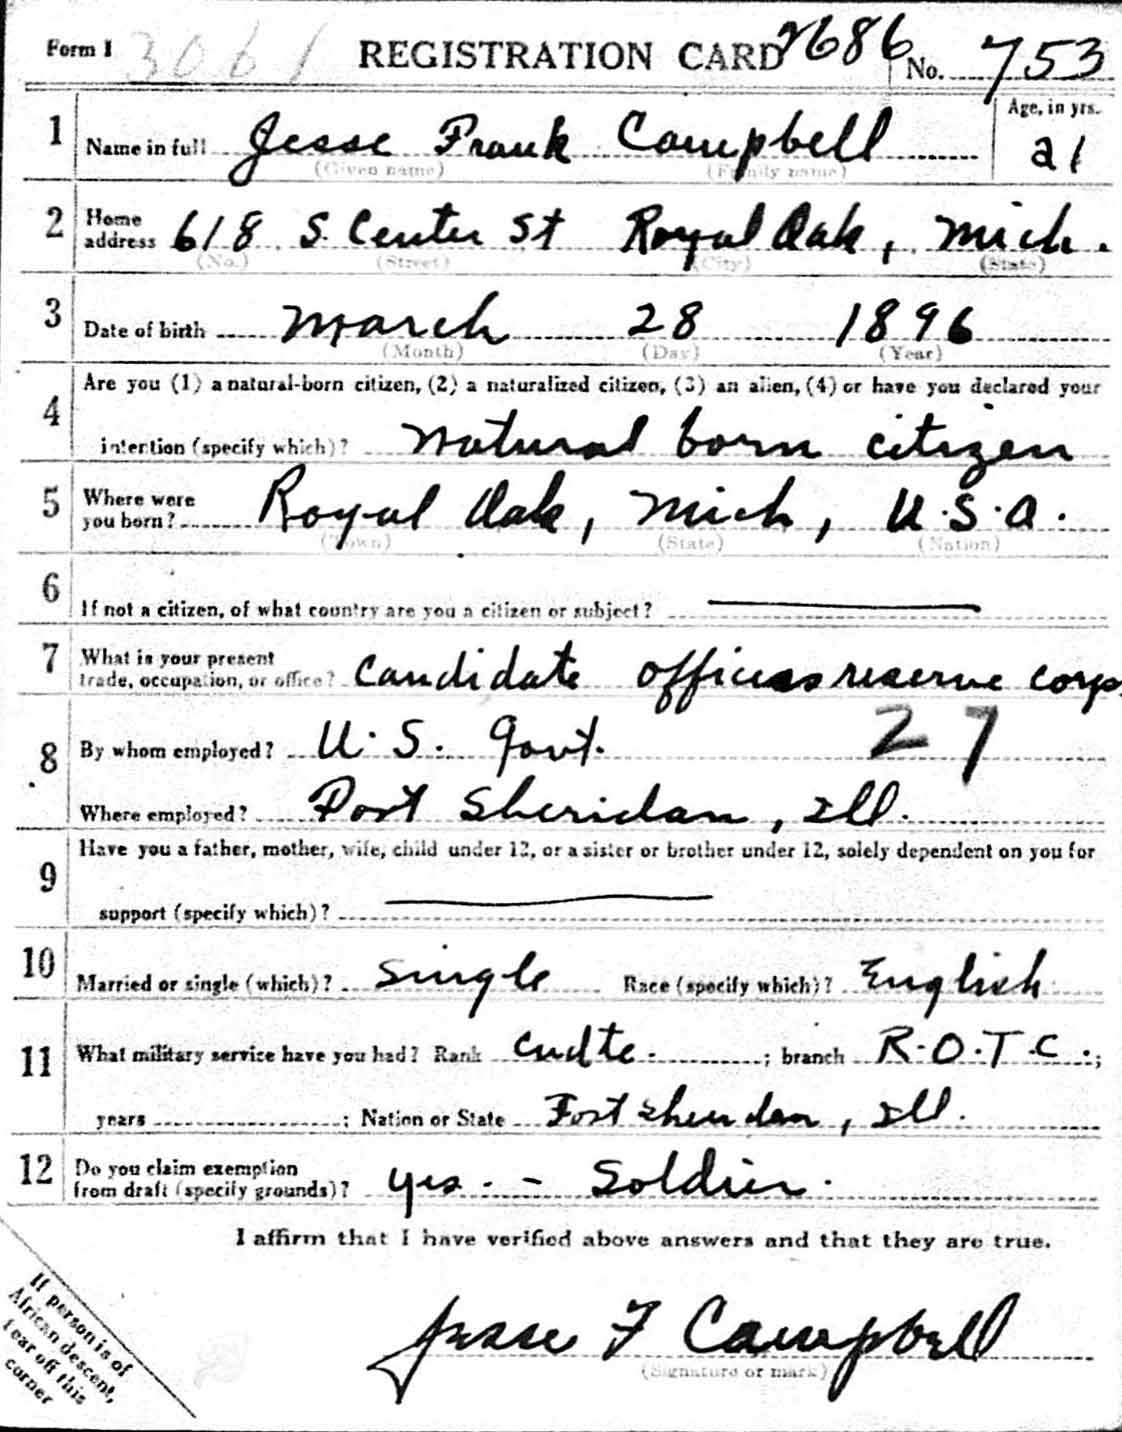 Form 1 3061 REGISTRATION CARD 2686 No. 753
1 Name in full Jesse Frank Campbell Age, in yrs.
(Given name) (Family name) 21
2 Home address 618 S. Center St Royal Oak, Mich.
(No.) (Street) (City) (State)
3 Date of birth March 28 1896
(Month) (Day) (Year)
4 Are you (1) a natural-born citizen, (2) a naturalized citizen, (3) an alien, (4) or have you declared your
intention (specify which)? Natural born citizen
5 Where were you born? Royal Oak, Mich, U.S.A.
(Town) (State) (Nation)
6 If not a citizen, of what country are you a citizen or subject?
7 What is your present trade, occupation, or office? Candidate officers reserve corps
8 By whom employed? U.S. Govt. 27
Where employed? Fort Sheridan, Ill.
9 Have you a father, mother, wife, child under 12, or a sister or brother under 12, solely dependent on you for
support (specify which)?
10 Married or single (which)? Single Race (specify which)? English
11 What military service have you had? Rank ; branch R.O.T.C.;
years ; Nation or State Fort Sheridan, Ill.
12 Do you claim exemption from draft (specify grounds)? Yes. - Soldier.
I affirm that I have verified above answers and that they are true.
Jesse F Campbell
(Signature or mark)
If person is of
African descent,
tear off this
corner